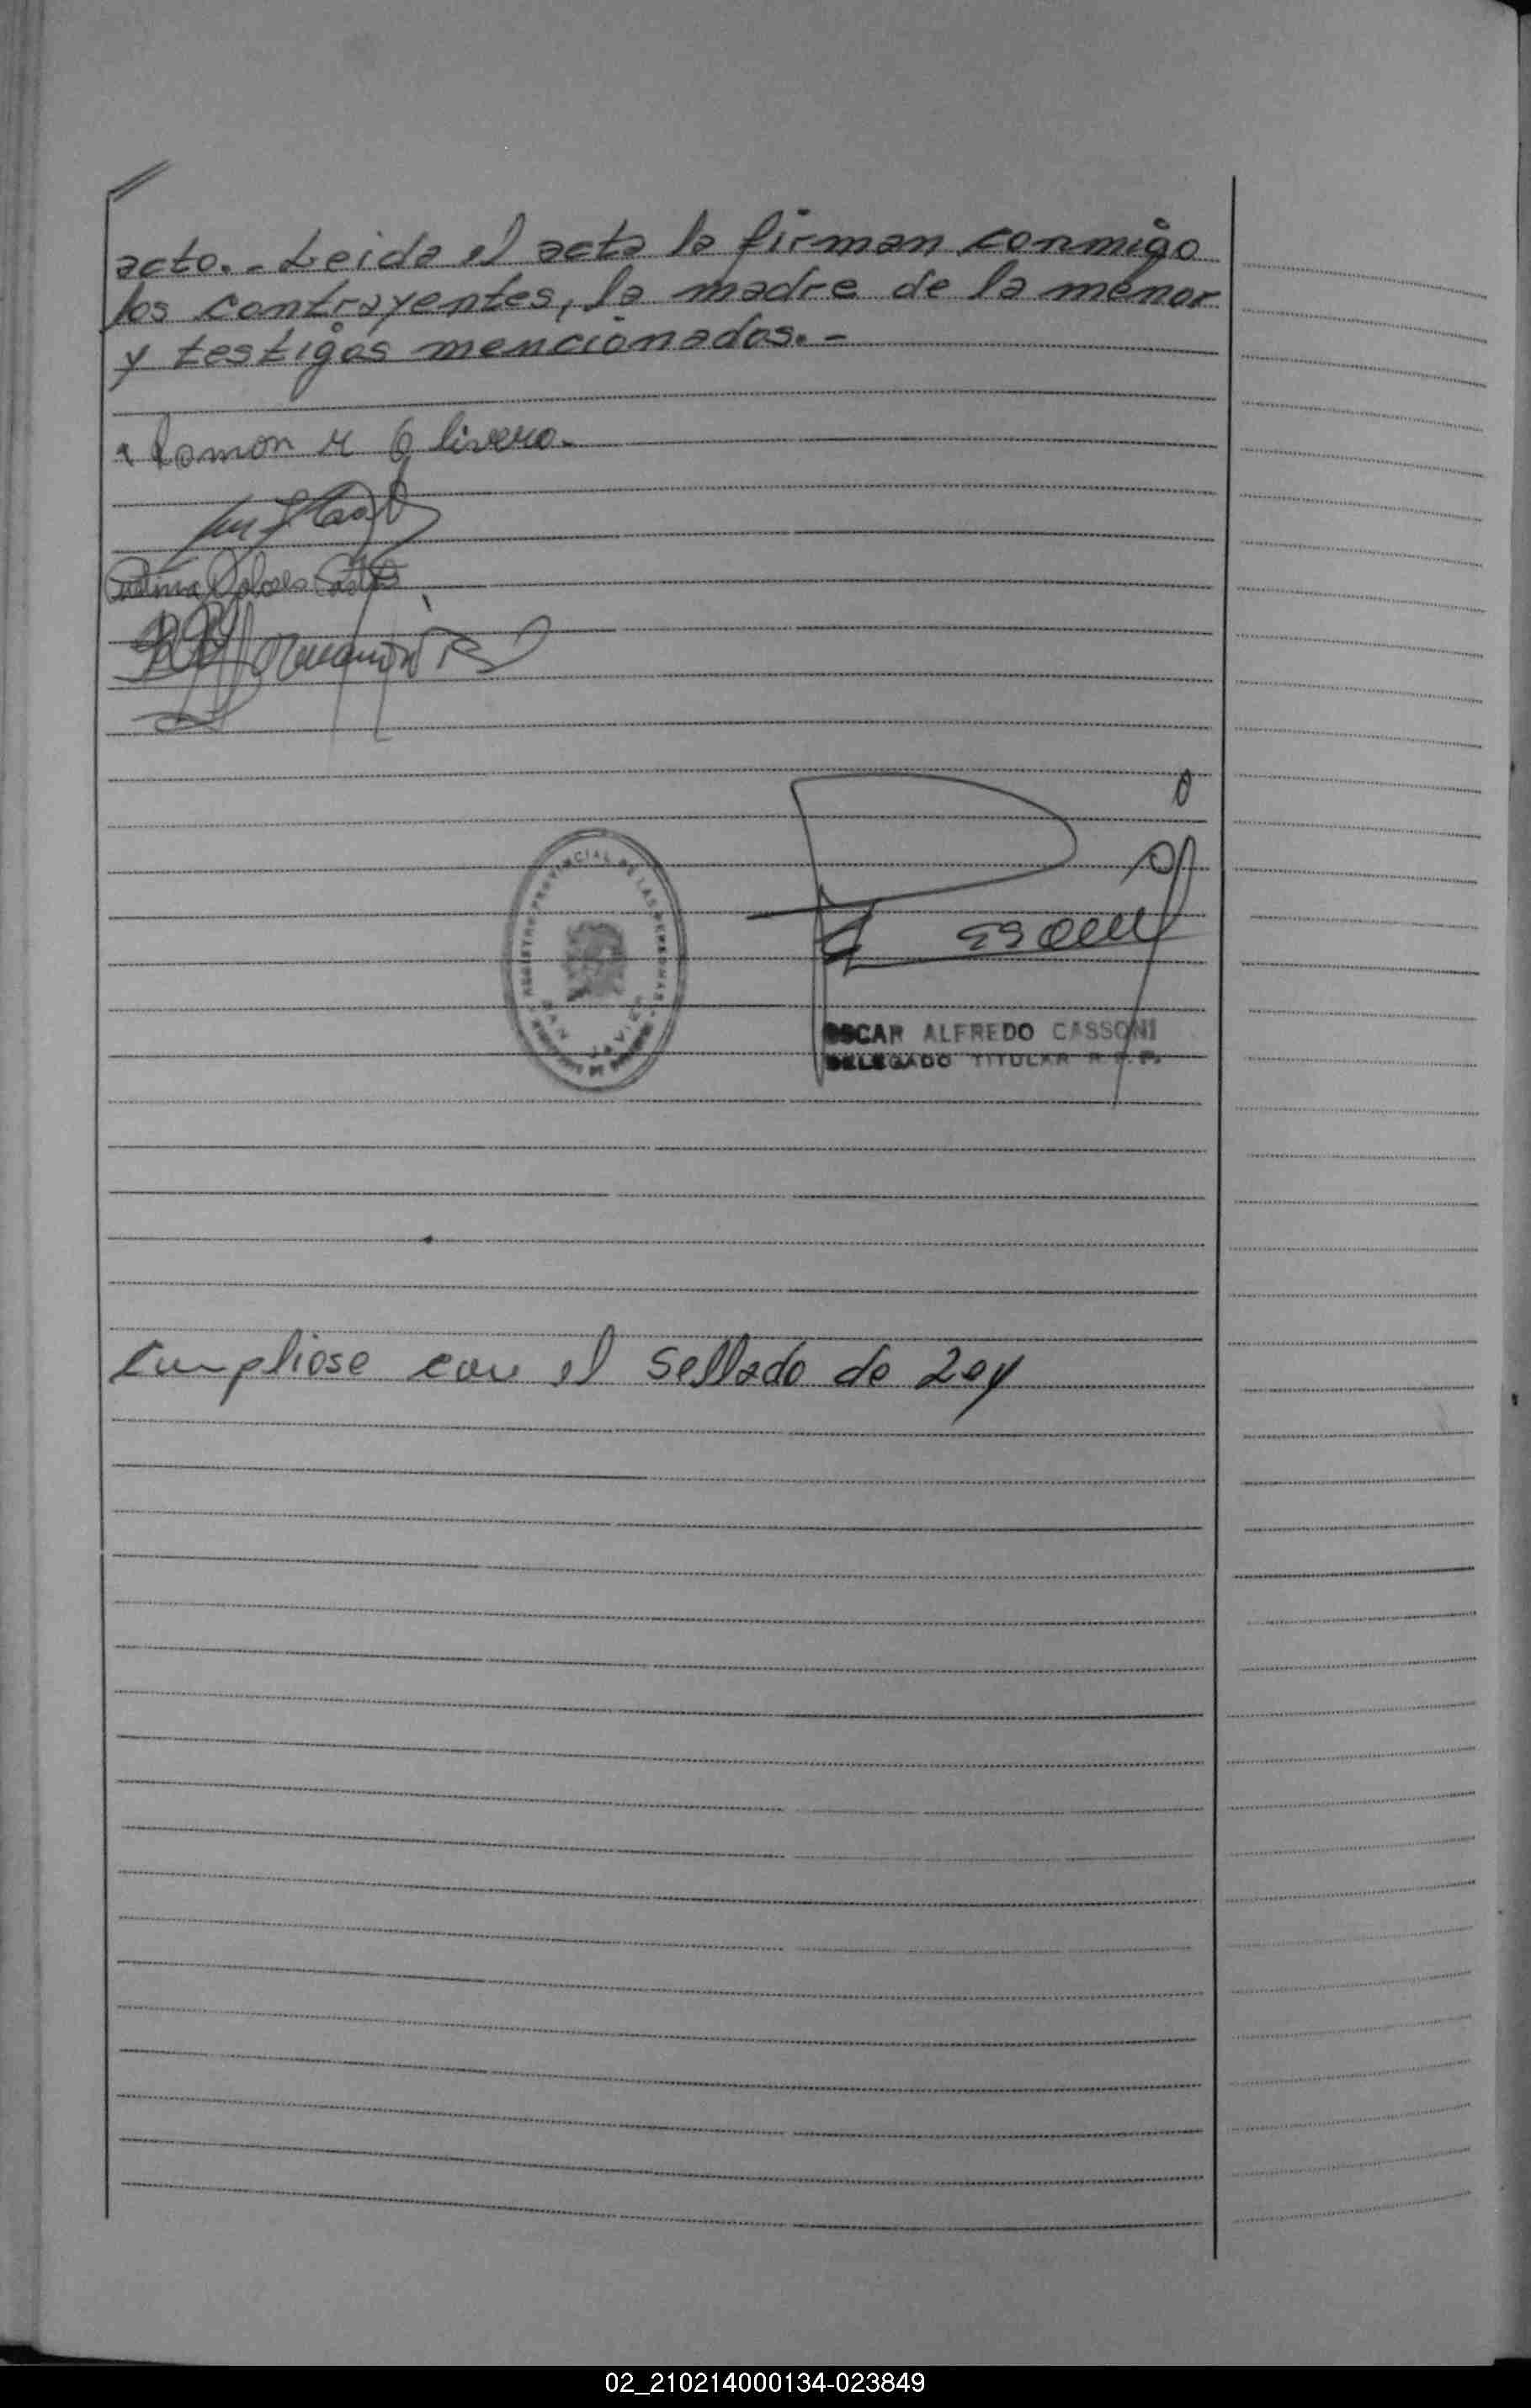 acto.- Leida el acta la firman conmigo
los contrayentes, la madre de la menor
y testigos mencionados.-
Ramon R Olivero.
REGISTRO PROVINCIAL DE LAS PERSONAS
SAN JAVIER
OSCAR ALFREDO CASSONI
DELEGADO TITULAR R.P.P.
Cumpliose con el sellado de Ley
02_210214000134-023849